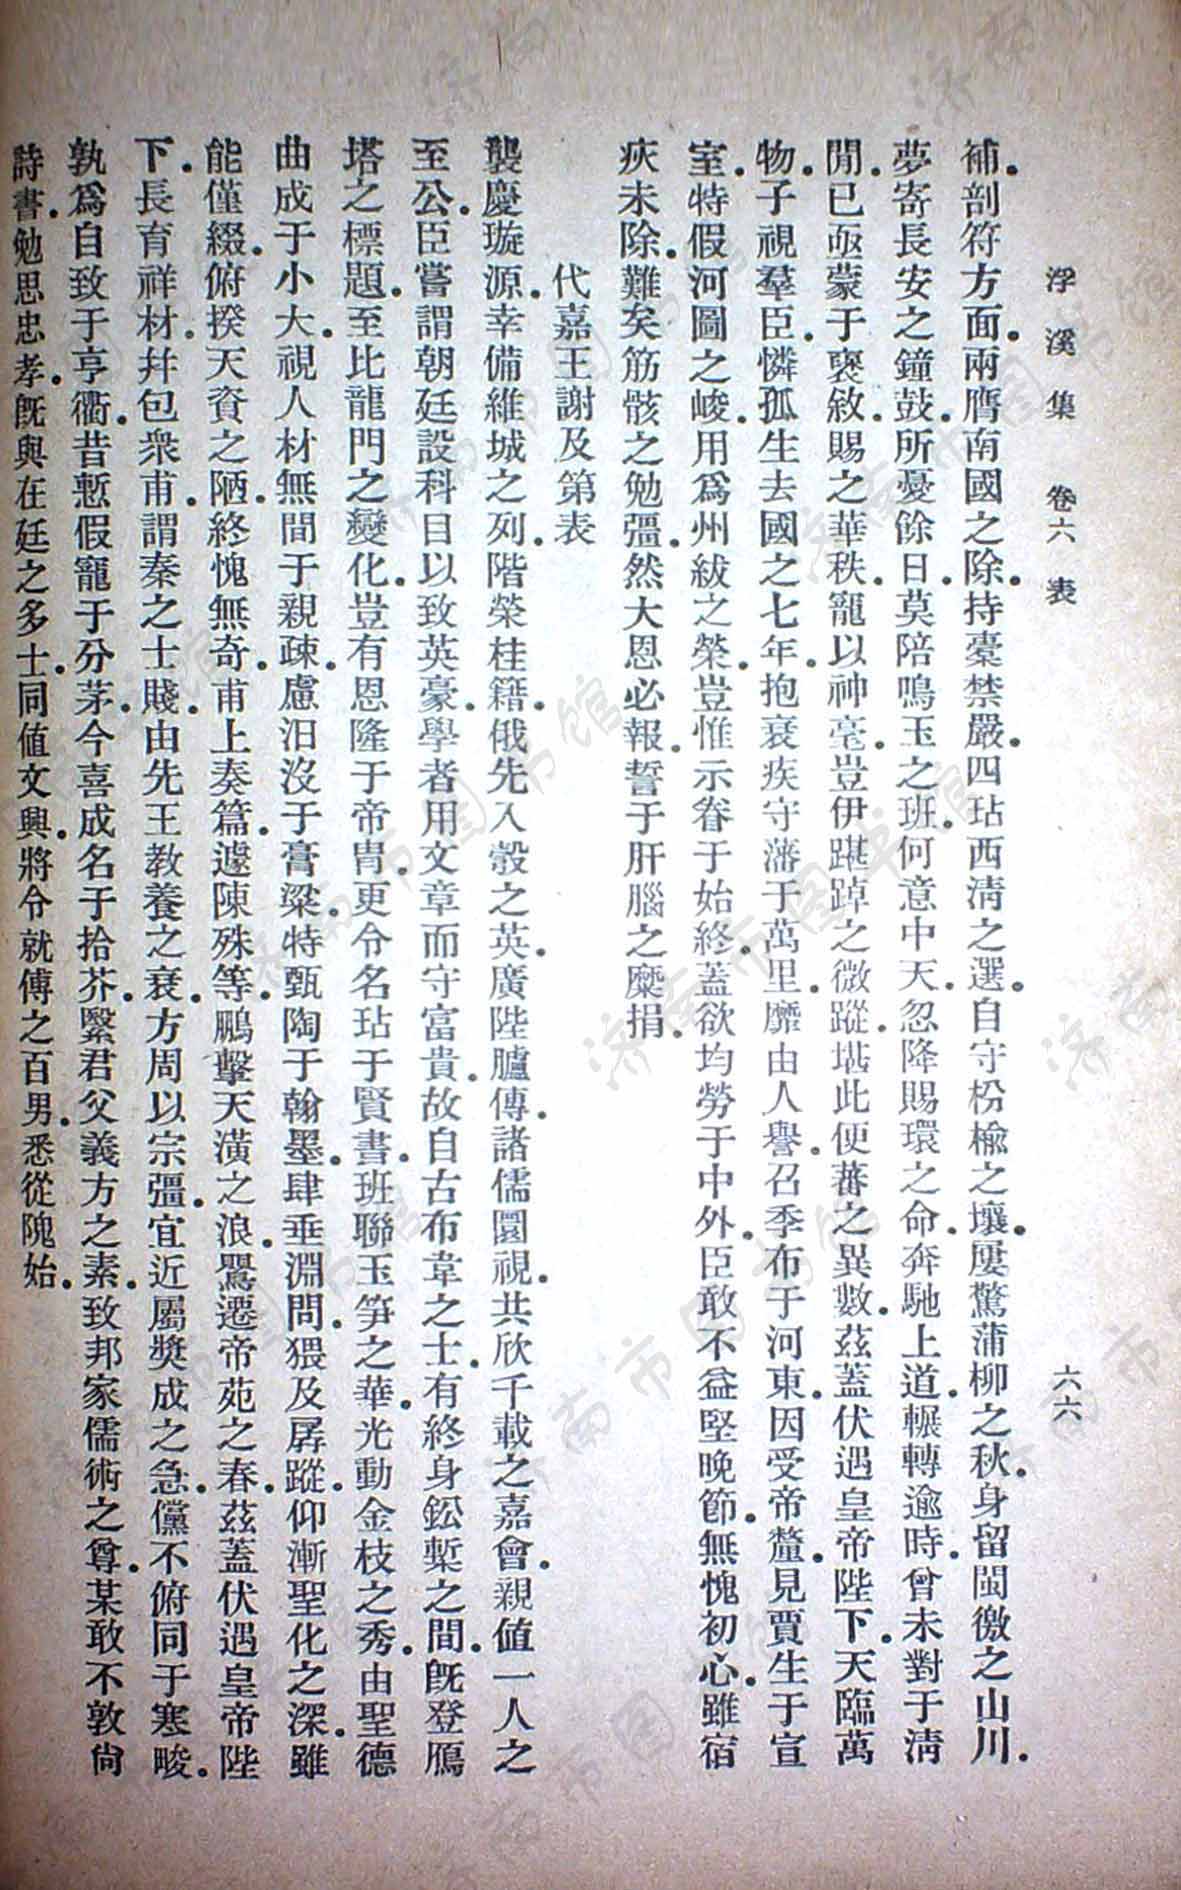 浮溪集 卷六 表 六六
補。剖符方面。兩膺南國之除。持橐禁嚴。四玷西淸之選。自守枌楡之壤。屢驚蒲柳之秋。身留閩徼之山川。
夢寄長安之鐘鼓。所憂餘日。莫陪鳴玉之班。何意中天。忽降賜環之命。奔馳上道。輾轉逾時。曾未對于淸
閒。已亟蒙于褒敘。賜之華秩。寵以神毫。豈伊踸踔之微蹤。堪此便蕃之異數。茲蓋伏遇皇帝陛下。天臨萬
物。子視羣臣。憐孤生去國之七年。抱衰疾守藩于萬里。靡由人譽。召季布于河東。因受帝釐。見賈生于宣
室。特假河圖之峻。用爲州紱之榮。豈惟示眷于始終。蓋欲均勞于中外。臣敢不益堅晚節。無愧初心。雖宿
疢未除。難矣筋骸之勉彊。然大恩必報。誓于肝腦之糜捐。
代嘉王謝及第表
襲慶璇源。幸備維城之列。階榮桂籍。俄先入彀之英。廣陛臚傳。諸儒圜視。共欣千載之嘉會。親値一人之
至公。臣嘗謂朝廷設科目以致英豪。學者用文章而守富貴。故自古布韋之士。有終身鉛槧之間。旣登鴈
塔之標題。至比龍門之變化。豈有恩隆于帝冑。更令名玷于賢書。班聯玉笋之華。光動金枝之秀。由聖德
曲成于小大。視人材無間于親疎。慮汨沒于膏粱。特甄陶于翰墨。肆垂淵問。猥及孱蹤。仰漸聖化之深。雖
能僅綴。俯揆天資之陋。終愧無奇。甫上奏篇。遽陳殊等。鵬擊天潢之浪。鶯遷帝苑之春。茲蓋伏遇皇帝陛
下。長育祥材。幷包衆甫。謂秦之士賤。由先王教養之衰。方周以宗彊。宜近屬奬成之急。儻不俯同于寒畯。
孰爲自致于亨衢。昔慙假寵于分茅。今喜成名于拾芥。繄君父義方之素。致邦家儒術之尊。某敢不敦尙
詩書。勉思忠孝。旣與在廷之多士。同値文興。將令就傅之百男。悉從隗始。